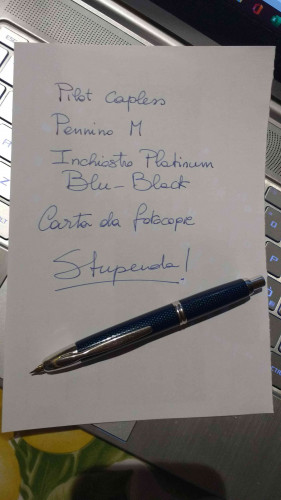 Pilot Capless
Pennino M
Inchiostro Platinum
Blu-Black
Carta da fotocopie
Stupenda!